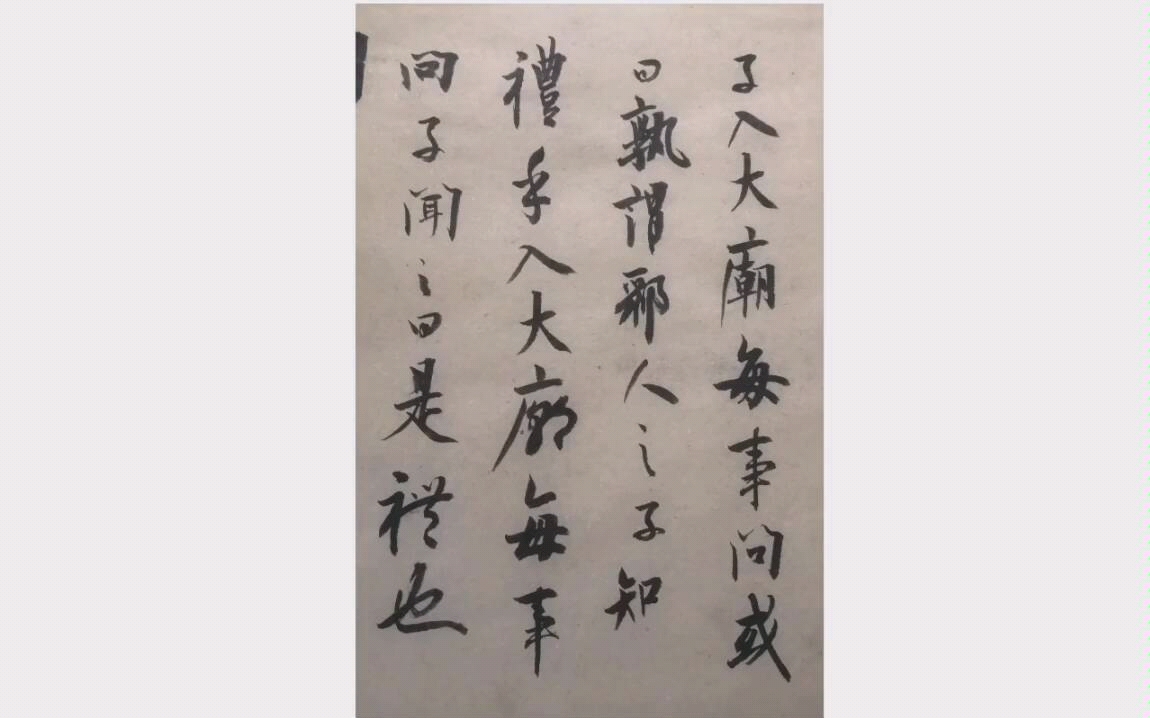 子入大廟每事問或
曰孰謂鄹人之子知
禮乎入大廟每事
問子聞之曰是禮也